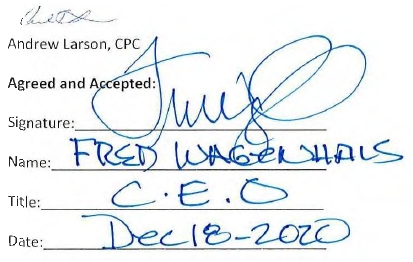 Andrew Larson, CPC
Agreed and Accepted:
Signature:
Name: FRED WAGENHALS
Title: C.E.O
Date: Dec 18-2020